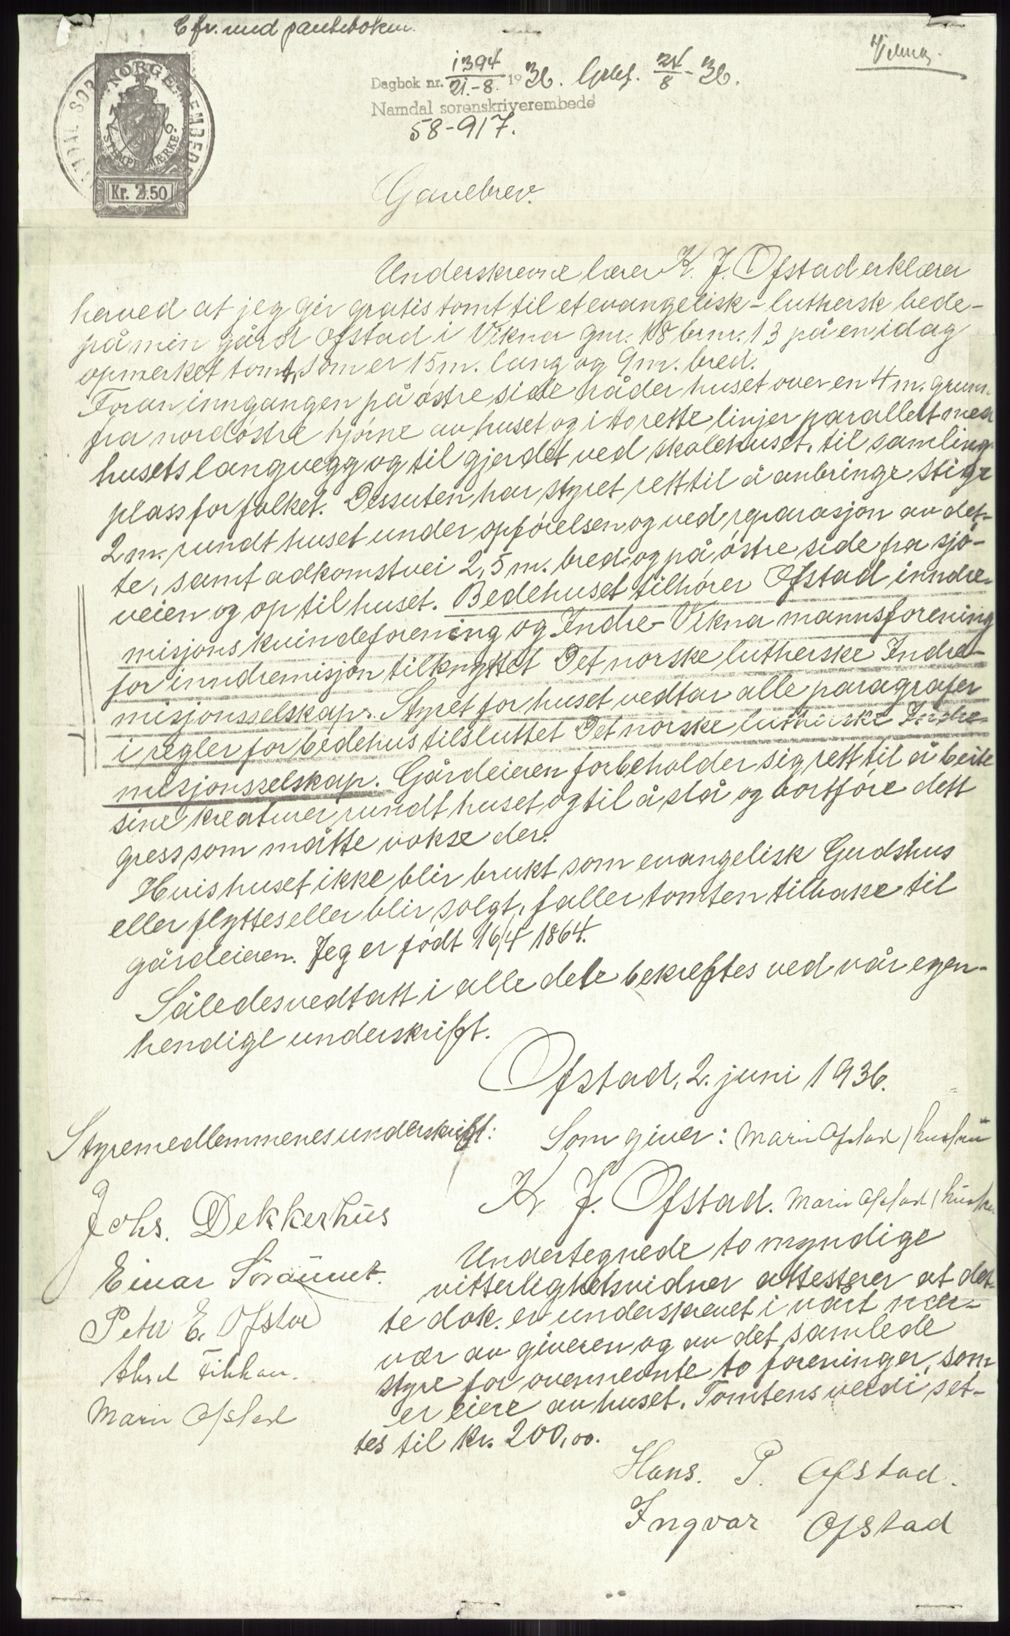 Efr. med panteboken.
Vikna.
NORGE
STEMPELMERKE
Kr. 2.50
Dagbok nr. 1394/21.-8. 1936. 24/8-36.
Namdal sorenskriverembede
58-917.
Gavebrev.
Underskrevne lærer K. J. Ofstad erklærer
herved at jeg gir gratis tomt til et evangelisk-luthersk bede-
på min gård Ofstad i Vikna gnr. 18 brnr. 13 på en idag
opmerket tomt, som er 15 m. lang og 9 m. bred.
Foran inngangen på østre side råder huset over en 4 m. grunn
fra nordøstre hjørne av huset og i to rette linjer parallelt med
husets langvegg og til gjerdet ved skolehuset, til samling
plass for folket. Dessuten har styret rett til å anbringe stige
2 m. rundt huset under opførelsen og ved reparasjon av det-
te, samt adkomstvei 2,5 m. bred og på østre side fra sjø-
veien og op til huset. Bedehuset tilhører Ofstad indre-
misjons kvindeforening og Indre-Vikna mannsforening
for indremisjon tilknyttet Det norske lutherske Indre-
misjonsselskap. Styret for huset vedtar alle paragrafer
i regler for bedehus tilsluttet Det norske lutherske Indre-
misjonsselskap. Gårdeieren forbeholder sig rett til å beite
sine kreaturer rundt huset og til å slå og bortføre dett
gress som måtte vokse der.
Hvis huset ikke blir brukt som evangelisk Gudshus
eller flyttes eller blir solgt, faller tomten tilbake til
gårdeieren. Jeg er født 16/4 1864.
Således vedtatt i alle dele bekreftes ved vår egen-
hendige underskrift.
Ofstad, 2. juni 1936.
Styremedlemmenes underskrift:
Johs. Dekkerhus
Einar Søraunet.
Petter E. Ofstad
Marie Ofstad
Som giver: Marie Ofstad / hustru
K. J. Ofstad. Marie Ofstad / hustru
Undertegnede to myndige
vitterlighetsvidner attesterer at det-
te dok. er underskrevet i vårt nær-
vær av giveren og av det samlede
styre for ovennevnte to foreninger, som
er eiere av huset. Tomtens verdi set-
tes til kr. 200,00.
Hans. P. Ofstad.
Ingvar Ofstad